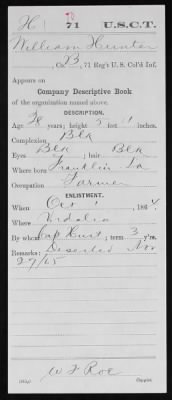 H 71 U.S.C.T.
William Hunter
Co. B, 71 Reg't U. S. Col'd Inf.
Appears on
Company Descriptive Book
of the organization named above.
DESCRIPTION.
Age years; height feet inches.
Complexion Blk
Eyes Blk; hair Blk
Where born Franklin La
Occupation Farmer
ENLISTMENT.
When Oct 1, 1864.
Where Vidalia
By whom Cap Hurt; term 3 y'rs.
Remarks: Deserted Nov
27/65
Copyist.